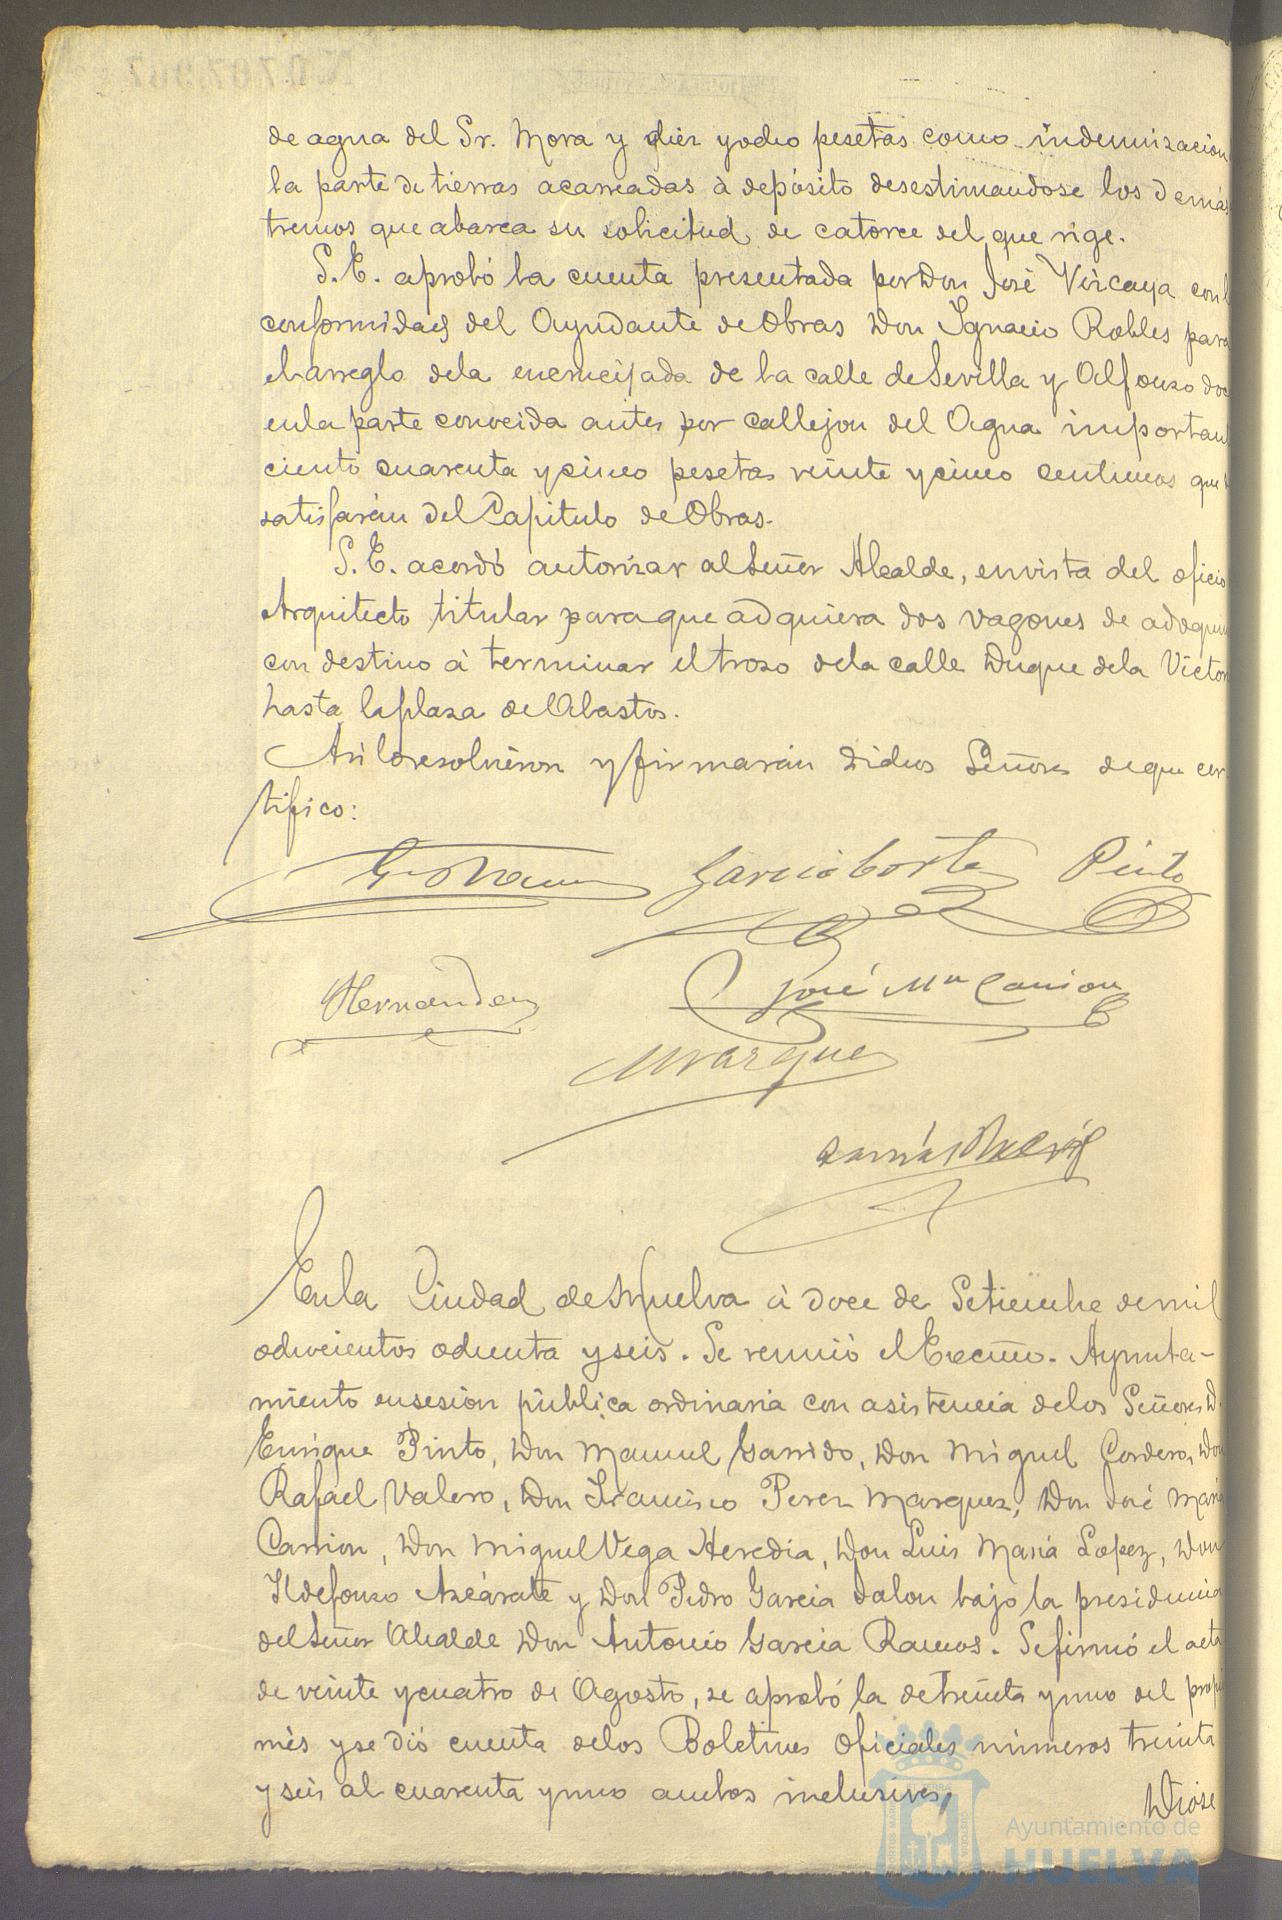 de agua del Sr. Mora y diez y ocho pesetas como indemnizacion
la parte de tierras acarreadas à depósito desestimandose los demás
tremos que abarca su solicitud, de catorce del que rige.
S. E. aprobó la cuenta presentada por Don José Vizcaya con l
conformidad del Ayudante de Obras Don Ignacio Robles para
el arreglo de la encrucijada de la calle de Sevilla y Alfonso doc
en la parte conocida antes por callejon del Agua important
ciento cuarenta y cinco pesetas veinte y cinco centimos que
satisfarán del Capitulo de Obras.
S. E. acordó autorizar al Señor Alcalde, en vista del oficio
Arquitecto titular para que adquiera dos vagones de adoquin
con destino à terminar el trozo de la calle Duque de la Victor
hasta la plaza de Abastos.
Asi lo resolvieron y firmarán dichos Señores de que cer
tifico:
Garcia Cortes Pinto
Hernandez José Mª Carrion
Marquez
En la Ciudad de Huelva à doce de Setiembre de mil
ochocientos ochenta y seis. Se reunió el Excmo. Ayunta-
miento en sesion pública ordinaria con asistencia de los Señores D.
Enrique Pinto, Don Manuel Garrido, Don Miguel Cordero, Don
Rafael Valero, Don Francisco Perez Marquez, Don José Maria
Carrion, Don Miguel Vega Heredia, Don Luis Maria Lopez, Don
Ildefonso Azcárate y Don Pedro Garcia Jalon bajo la presidencia
del Señor Alcalde Don Antonio Garcia Ramos. Se firmó el acta
de veinte y cuatro de Agosto, se aprobó la de treinta y uno del propi
mes y se dió cuenta de los Boletines Oficiales números treinta
y seis al cuarenta y uno ambos inclusives, Diose
Ayuntamiento de
HUELVA